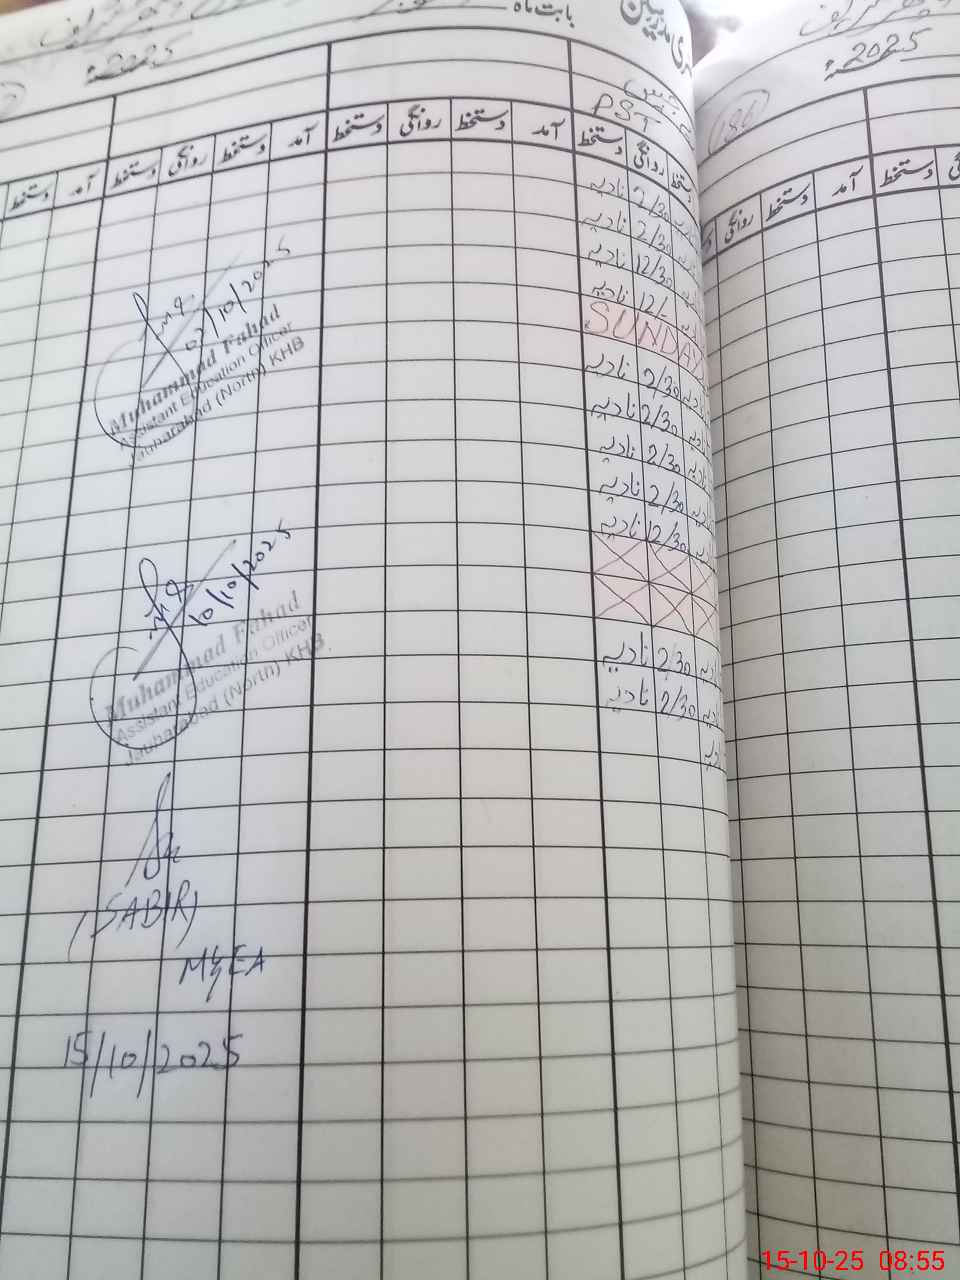 بابت ماہ
2025
2025
186
PST
دستخط روانگی دستخط آمد دستخط روانگی دستخط آمد دستخط روانگی دستخط
آمد دستخط
روانگی دستخط آمد دستخط
نادیہ 2/30
نادیہ 2/30
نادیہ 12/30
نادیہ 12/-
SUNDAY
نادیہ 2/30 نادیہ
نادیہ 2/30 نادیہ
نادیہ 2/30 نادیہ
نادیہ 2/30 نادیہ
نادیہ 12/30
نادیہ 2/30 نادیہ
نادیہ 2/30 نادیہ
02/10/2025
Muhammad Fahad
Assistant Education Officer
Jauharabad (North) KHB
10/10/2025
Muhammad Fahad
Assistant Education Officer
Jauharabad (North) KHB.
(SABIR)
M&EA
15/10/2025
15-10-25 08:55